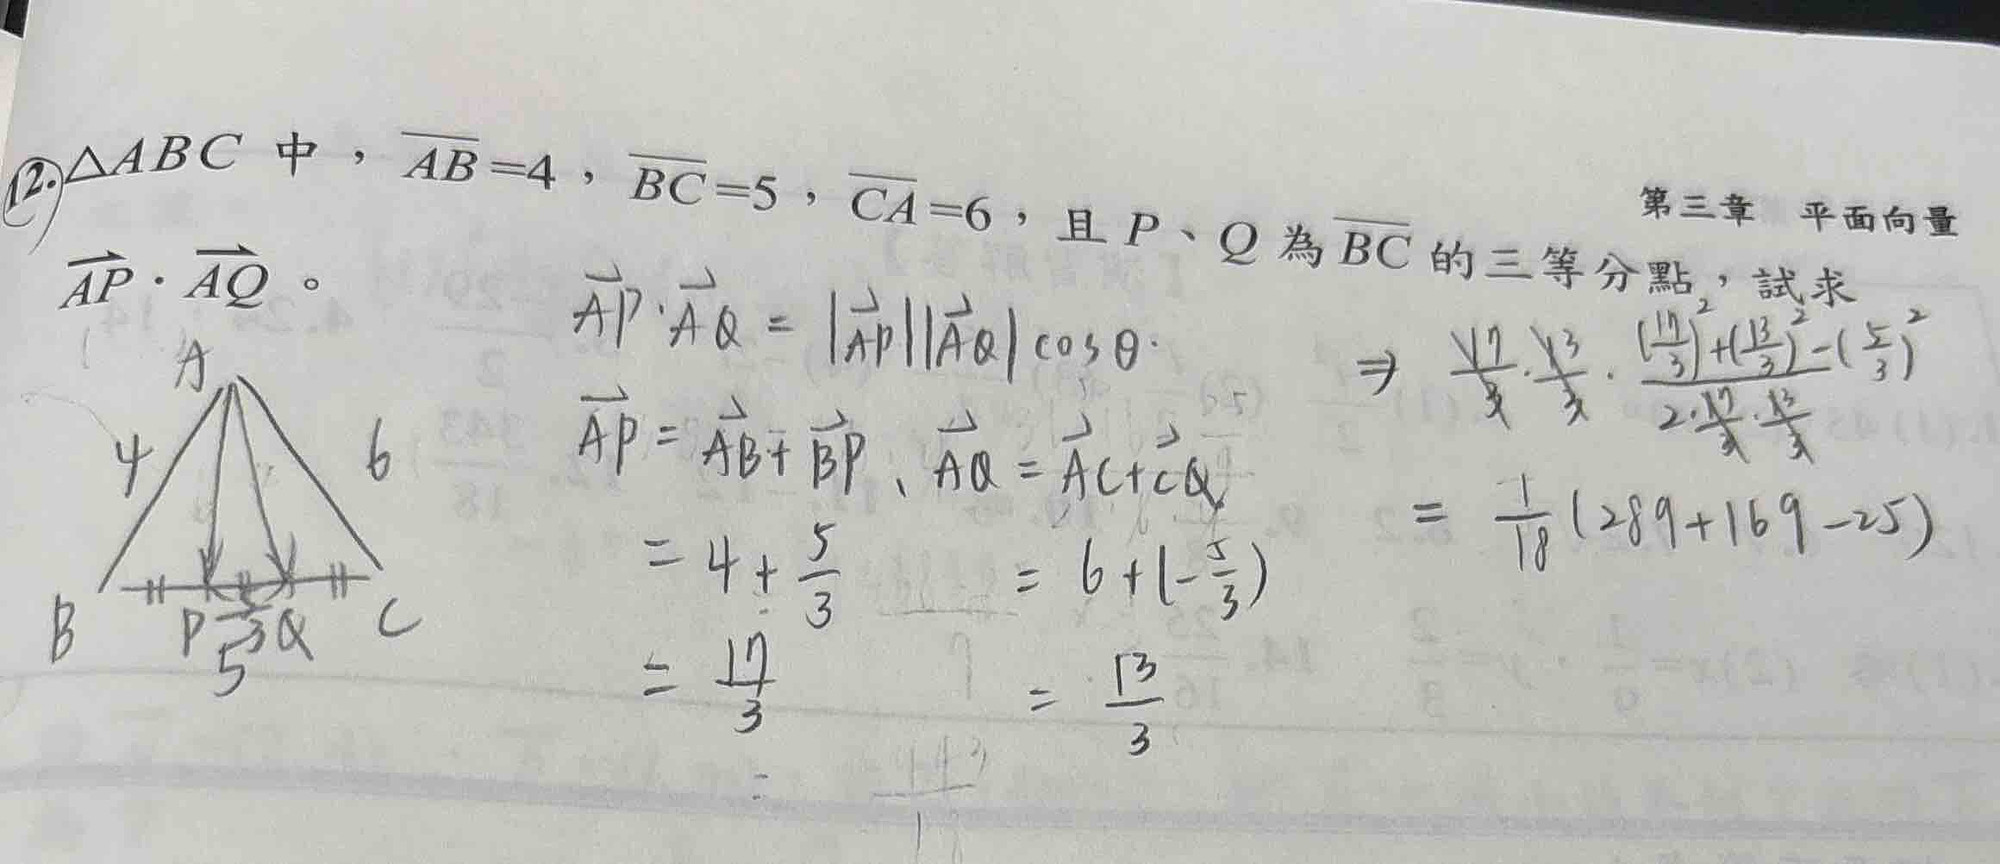 第三章 平面向量
12. △ABC 中，AB=4，BC=5，CA=6，且 P、Q 為 BC 的三等分點，試求
AP⃗ · AQ⃗。
AP⃗ · AQ⃗ = |AP⃗||AQ⃗| cosθ.
AP⃗ = AB⃗ + BP⃗、AQ⃗ = AC⃗ + CQ⃗
= 4 + 5/3 = 6 + (-5/3)
= 17/3 = 13/3
=
⇒ 17/3 · 13/3 · ((17/3)² + (13/3)² - (5/3)²)/(2 · 17/3 · 13/3)
= 1/18 (289 + 169 - 25)
A
4 6
B P 5/3 Q C
5